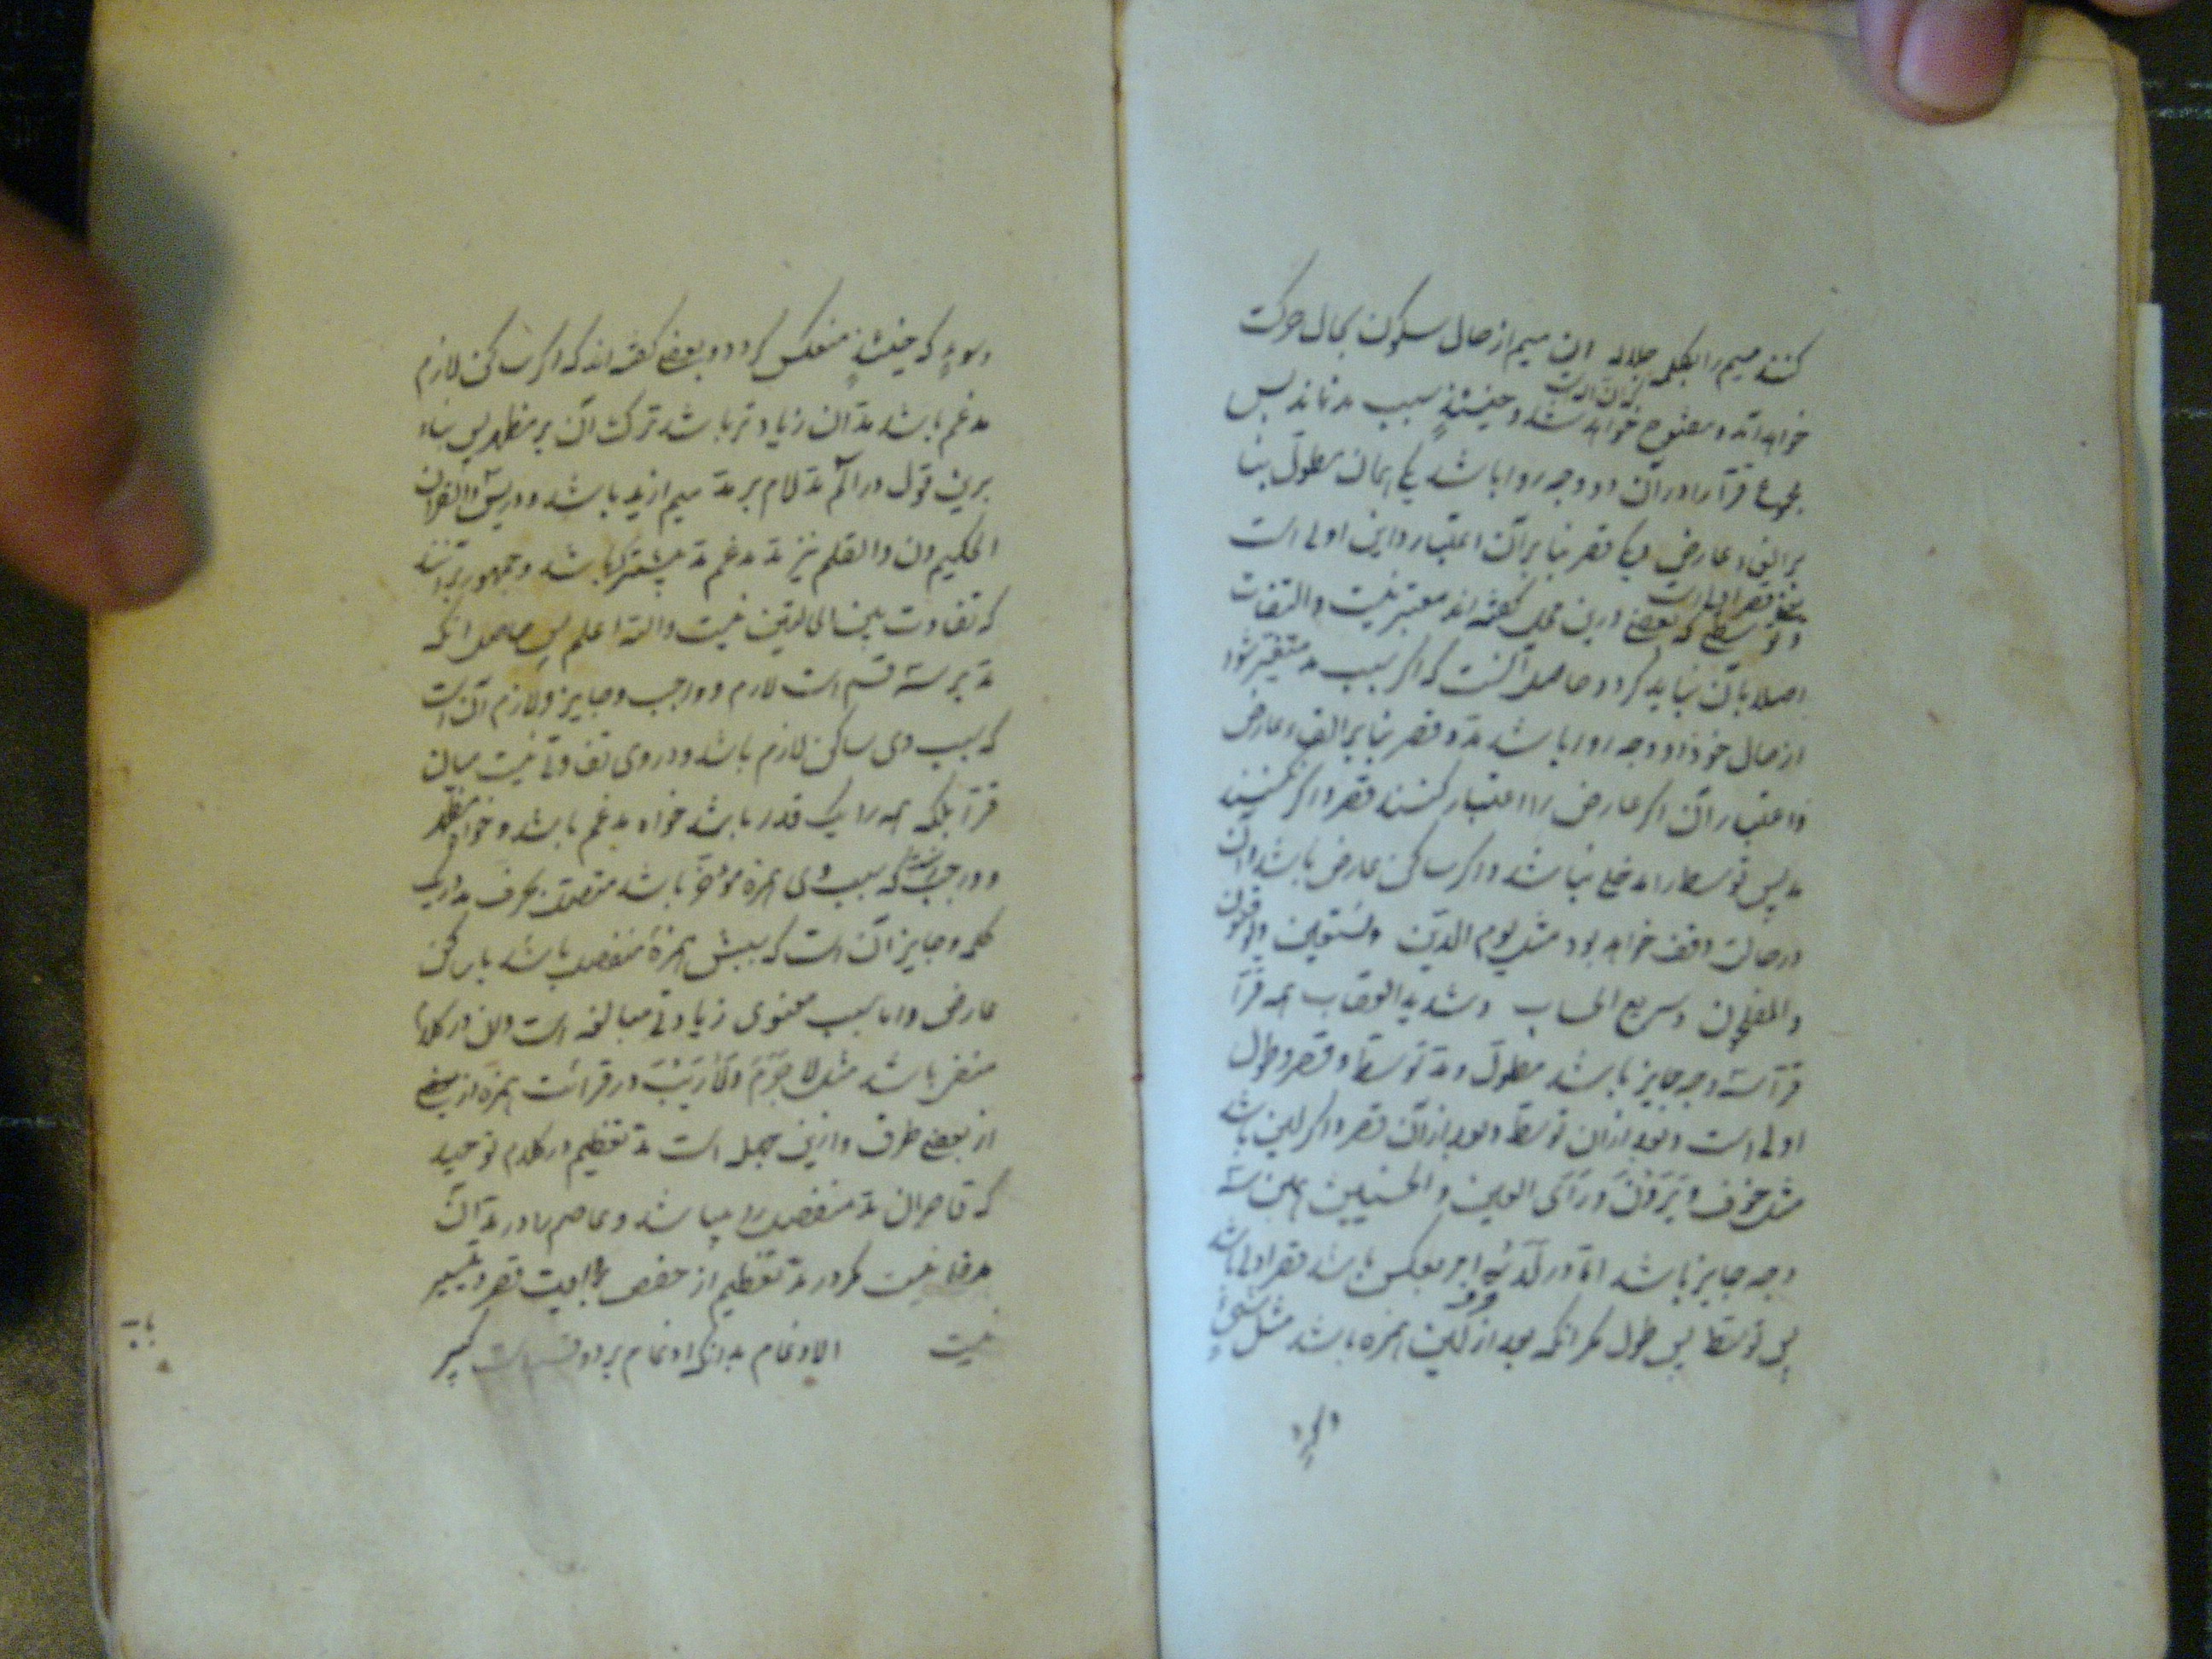 کنند میم را بکلمه جلاله این میم از حال سکون بحال حرکت
خواهد آمد و مفتوح خواهد شد و حینئذٍ سبب مد نماند پس
مجموع قرآ را در آن دو وجه روا باشد یکی همان مطول بنا
بر الغاء عارض یکی قصر بنا بر آن اعتبار و این اولی است
و توسطی که بعضی درین محل گفته اند معتبر نیست و التفات
اصلا بآن نباید کرد و حاصل آنست که اگر سبب مد متغیر شود
از حال خود دو وجه روا باشد مد و قصر بنا بر الغاء عارض
و اعتبار آن اگر عارض را اعتبار کنند قصر و اگر نکنند
مد پس توسط را مدخلی نباشد و اگر ساکن عارض باشد و آن
در حالت وقف خواهد بود مثل یوم الدین و نستعین و یوقنون
و المفلحون و سریع الحساب و شدید العقاب همه قرآ
قرآ سه وجه جایز باشد مطول و مد توسط و قصر و طول
اولی است و بعد از آن توسط و بعد از آن قصر و اگر لین باشد
مثل خوف و یرون و رأی العین و الحسنیین همین سه
وجه جایز باشد اما در لدیه اجر بعکس باشد قصر اولی باشد
پس توسط پس طول مگر آنکه بعد از لین همزه باشد مثل شیءٍ
که حینئذٍ منعکس گردد و بعضی گفته اند که اگر ساکن لازم
مدغم باشد مد آن زیادتر باشد ترک آن بر مظهر پس بناء
برین قول در الم مد لام بر مد میم ازید باشد و در یس و القرآن
الحکیم و ن و القلم نیز مد مدغم مد بیشتر باشد و جمهور برآنند
که تفاوت بین الحالتین نیست و الله اعلم پس حاصل آنکه
مد بر سه قسم است لازم و واجب و جایز و لازم آن است
که سبب وی ساکن لازم باشد و در وی تفاوتی نیست میان
قرآ بلکه همه را یک قدر باشد خواه مدغم باشد و خواه مظهر
و واجب که سبب وی همزه مؤخر باشد متصل بحرف مد در یک
کلمه و جایز آن است که سببش همزه منفصل باشد یا ساکن
عارض و اما سبب معنوی زیادتی مبالغه است و این در کلام
منفی باشد مثل لا جرم و لا ریب در قرائت همزه از بعضی
از بعضی طرق و ازین جمله است مد تعظیم در کلام توحید
که قاصران مد منفصل را میباشد و عاصم را در مد آن
مدخلی نیست مگر در مد تعظیم از حفص قصر و تیسیر
نیست الادغام بدانکه ادغام بر دو قسم است کبیر